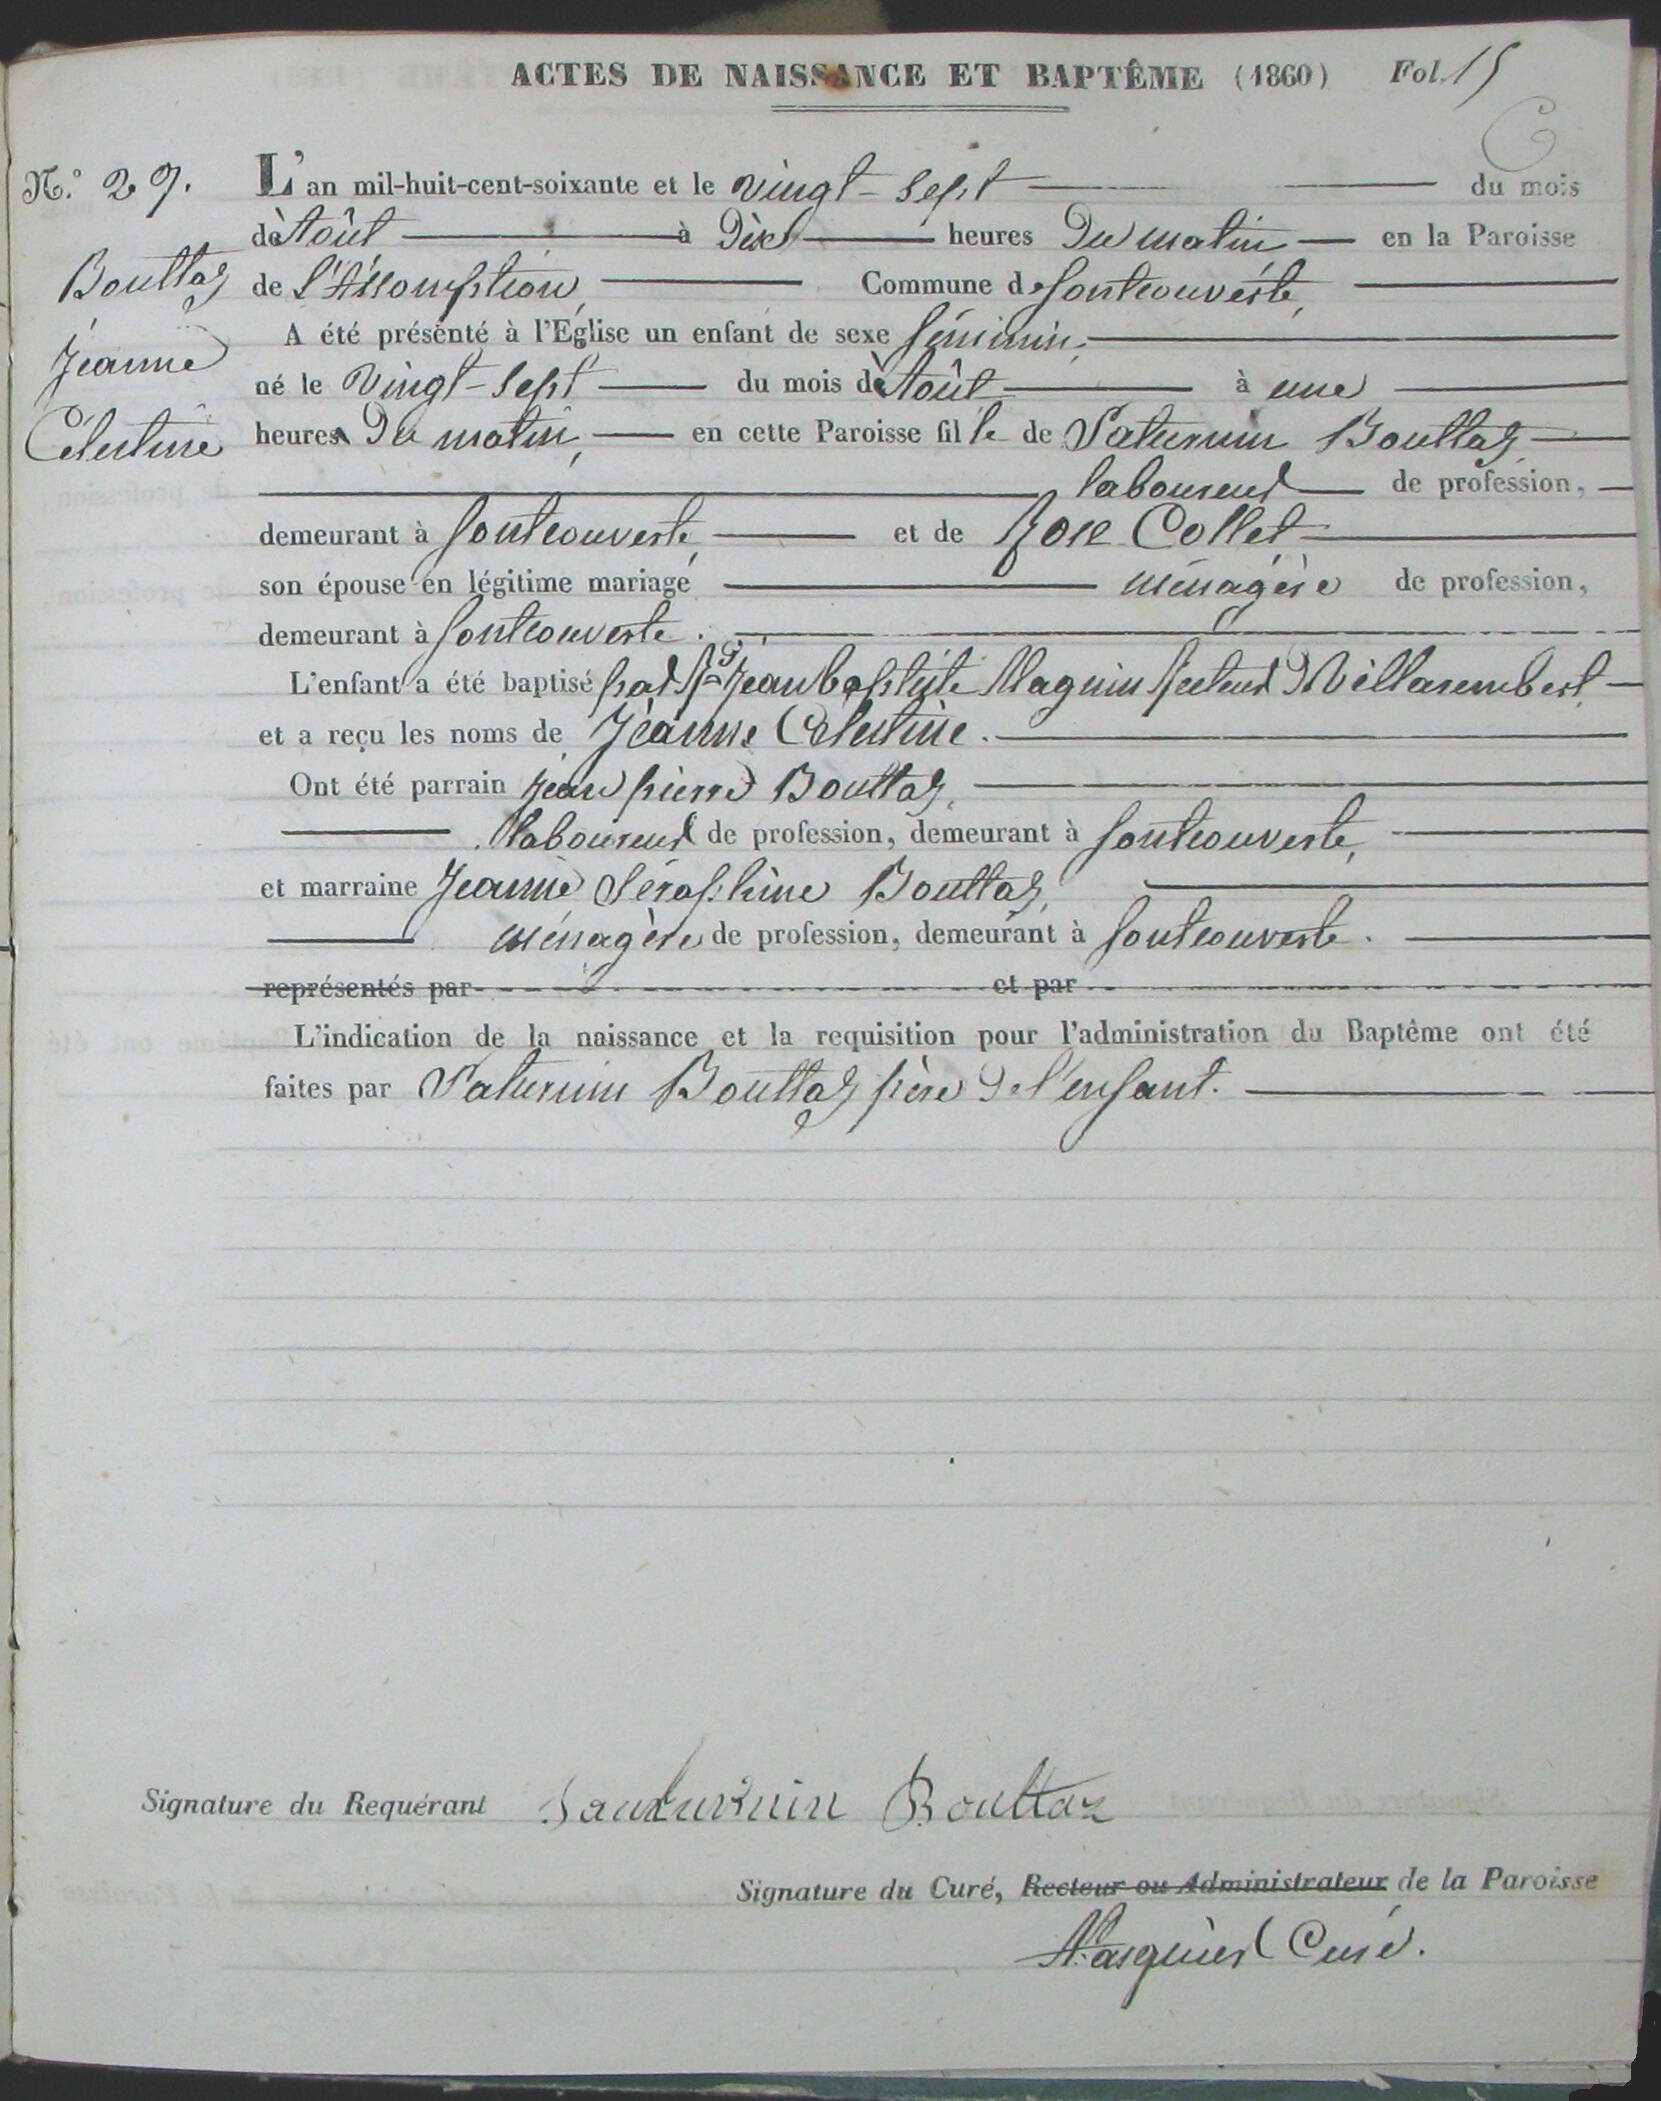 ACTES DE NAISSANCE ET BAPTÊME (1860) Fol. 15
N.° 29.
Bouttaz
Jeanne
Célestine
L'an mil-huit-cent-soixante et le vingt-sept du mois
d'Août à Dix heures Du matin en la Paroisse
de L'Assomption, Commune de fontcouverte,
A été présenté à l'Eglise un enfant de sexe féminin,
né le vingt-sept du mois d'Août à une
heure Du matin, en cette Paroisse fille de Saturnin Bouttaz
laboureur de profession,
demeurant à fontcouverte, et de Rose Collet
son épouse en légitime mariage ménagère de profession,
demeurant à fontcouverte.
L'enfant a été baptisé par Rd Jean baptiste Magnin Recteur D Villarembert,
et a reçu les noms de Jeanne Célestine.
Ont été parrain jean pierre Bouttaz,
laboureur de profession, demeurant à fontcouverte,
et marraine Jeanne Séraphine Bouttaz,
ménagère de profession, demeurant à fontcouverte.
représentés par et par
L'indication de la naissance et la requisition pour l'administration du Baptême ont été
faites par Saturnin Bouttaz père De l'enfant.
Signature du Requérant Sauturnin Bouttaz
Signature du Curé, Recteur ou Administrateur de la Paroisse
Curé.